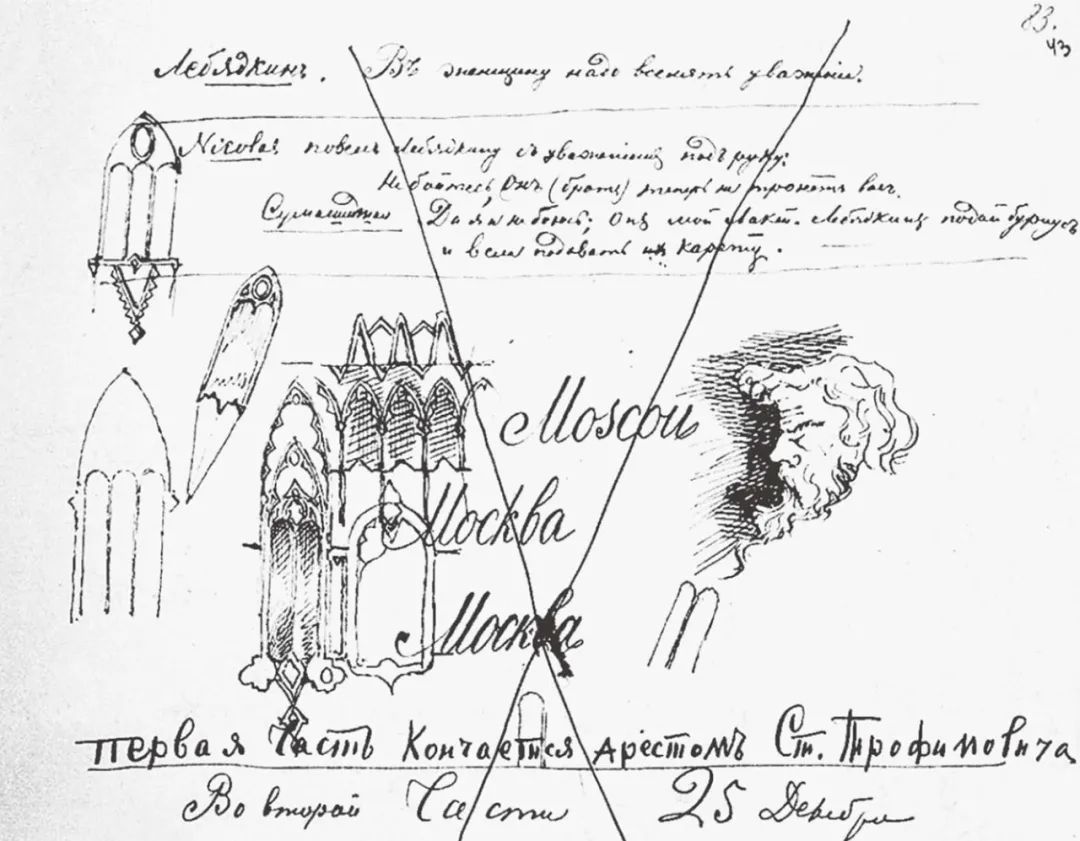 83.
43
Лебядкинъ. Въ женщину надо вселять уваженіе.
Nicolas повелъ Лебядкину съ уваженіемъ подъ руку:
Не бойтесь, Онъ (братъ) теперь не тронетъ васъ.
Сумашедшая Да я не боюсь; онъ мой лакей. Лебядкинъ подай бурнусъ
и вели подавать карету.
Moscou
Москва
Москва
Первая Часть Кончается арестомъ Ст. Трофимовича
Во второй Части 25 Декабря